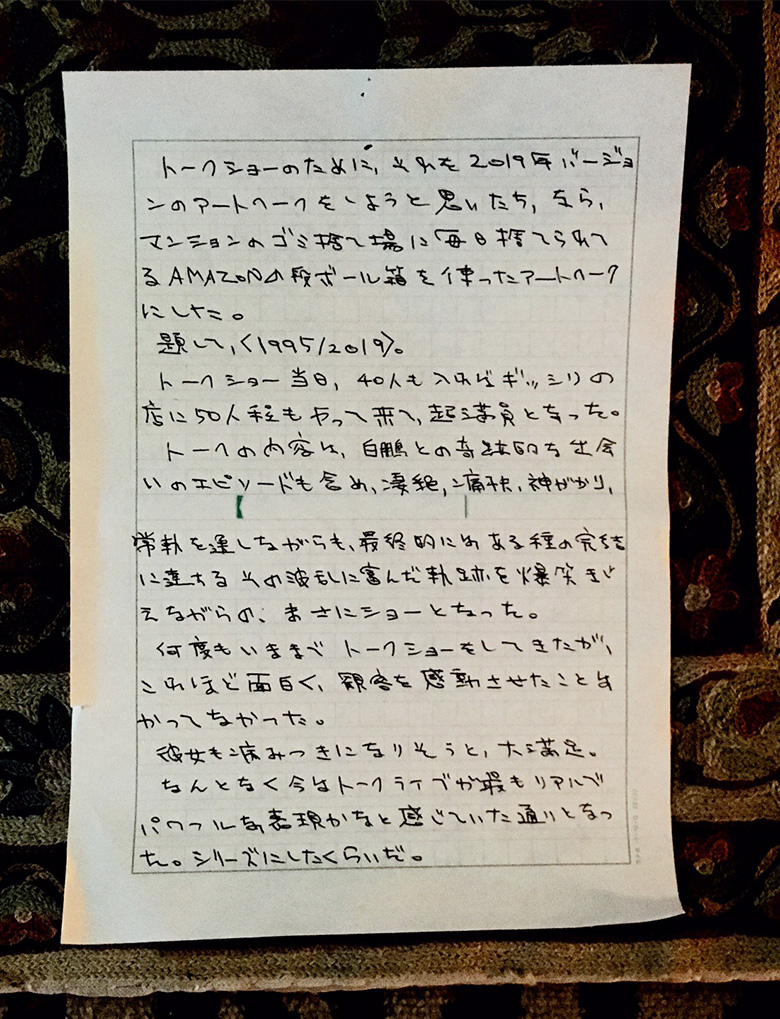 トークショーのために、それを2019年バージョ
ンのアートワークをしようと思いたち、なら、
マンションのゴミ捨て場に毎日捨てられて
るAMAZONの段ボール箱を使ったアートワーク
にした。
題して、<1995/2019>。
トークショー当日、40人も入ればギッシリの
店に50人程もやって来て、起満員となった。
トークの内容は、白鵬との奇跡的な出会
いのエピソードも含め、凄絶、痛快、神がかり、
常軌を逸しながらも、最終的にはある種の完結
に達する その波乱に富んだ軌跡を爆笑まじ
えながらの、まさにショーとなった。
何度もいままで トークショーをしてきたが、
これほど面白く、観客を感動させたことは
かつてなかった。
彼女も病みつきになりそうと、大満足。
なんとなく今はトークライブが最もリアルで
パワフルな表現かなと感じていた通りとなっ
た。シリーズにしたくらいだ。